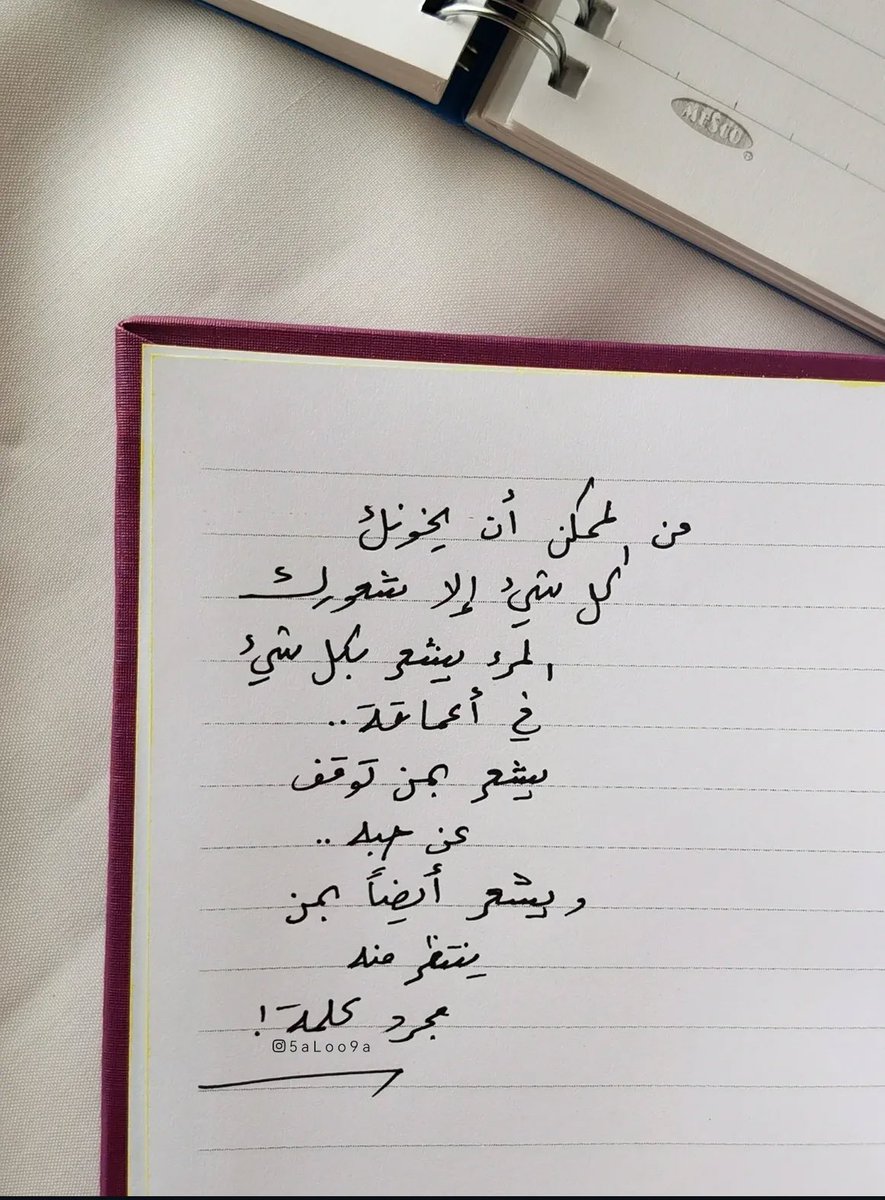 MESCO
من الممكن أن يخونك
كل شيء إلا شعورك
المرء يشعر بكل شيء
في أعماقة..
يشعر بمن توقف
عن حبه..
ويشعر أيضاً بمن
ينتظر منه
مجرد كلمة!
5aLoo9a